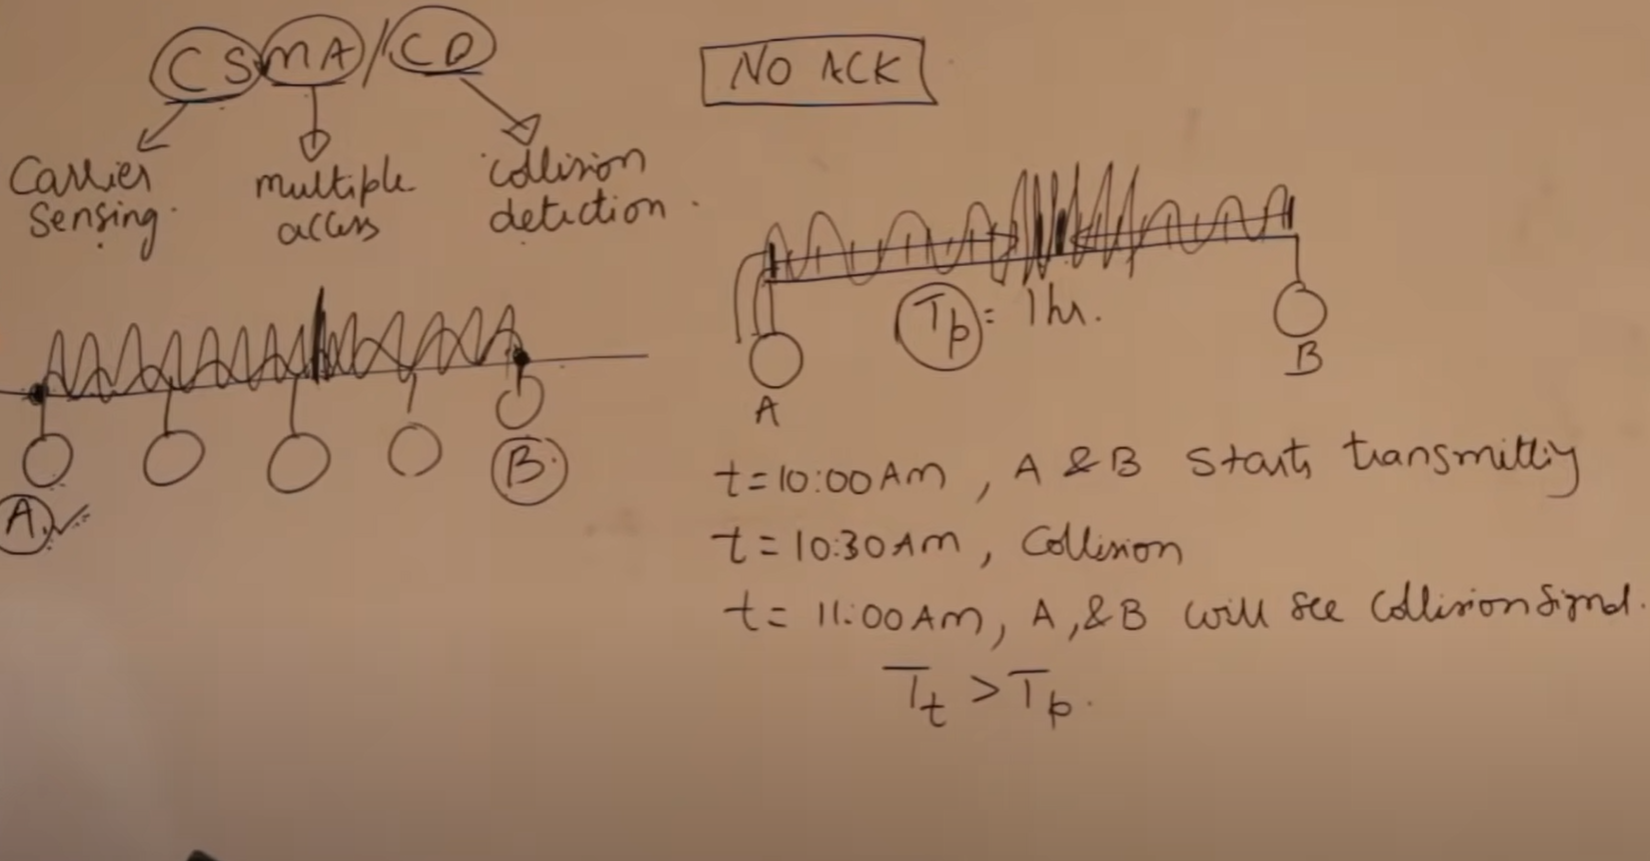 CSMA/CD
NO ACK
Carrier
Sensing.
multiple
access
collision
detection.
Tp = 1hr.
A
B
A
B
t=10:00Am, A & B starts transmitting
t=10:30Am, Collision
t= 11:00Am, A, & B will see Collision Signal.
Tt > Tp.